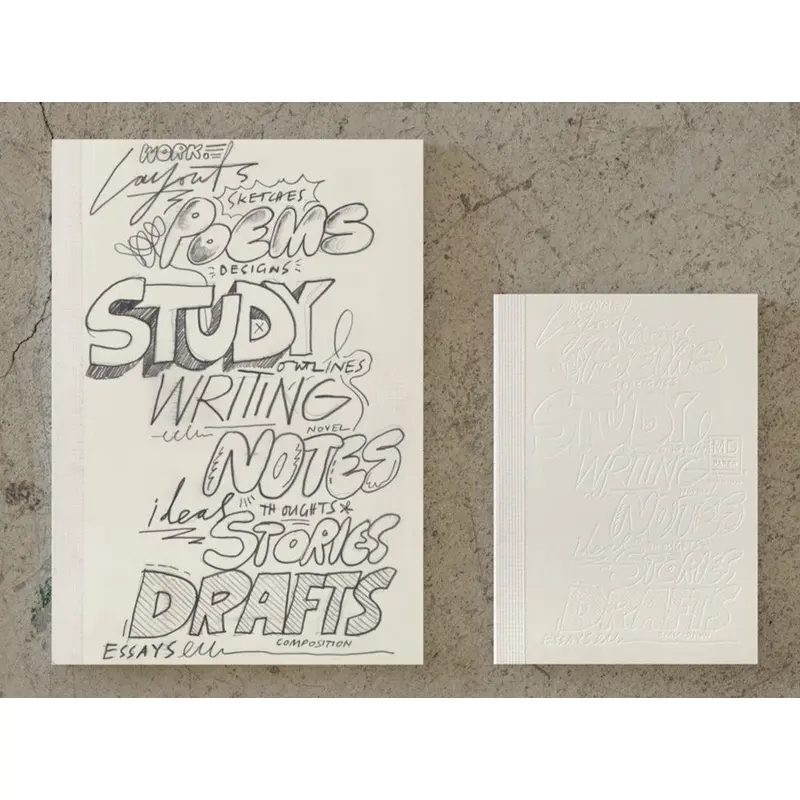 WORK.
Layouts
SKETCHES
POEMS
DESIGNS
STUDY
OUTLINES
WRITING
NOVEL
NOTES
ideas
THOUGHTS
STORIES
DRAFTS
ESSAYS
COMPOSITION
POEMS
STUDY
MD
WRITING
NOTES
STORIES
DRAFTS
ESSAYS
COMPOSITION